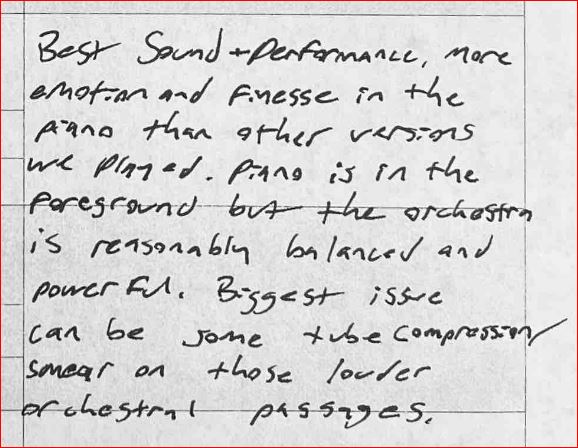 Best Sound + Performance, more
emotion and finesse in the
piano than other versions
we played. Piano is in the
foreground but the orchestra
is reasonably balanced and
powerful. Biggest issue
can be some tube compression/
smear on those louder
orchestral passages.